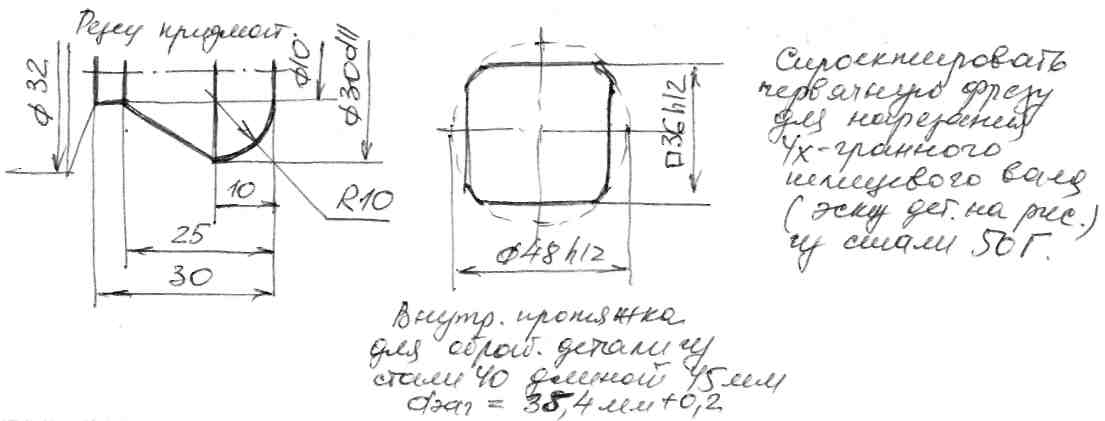 Резец призмат.
ϕ32
ϕ10
ϕ30d11
10
R10
25
30
□36h12
ϕ48h12
Спроектировать
червячную фрезу
для нарезания
4х-гранного
шлицевого вала
(эскиз дет. на рис.)
из стали 50Г.
Внутр. протяжка
для обраб. детали из
стали 40 длиной 45мм
dзаг = 38,4мм+0,2